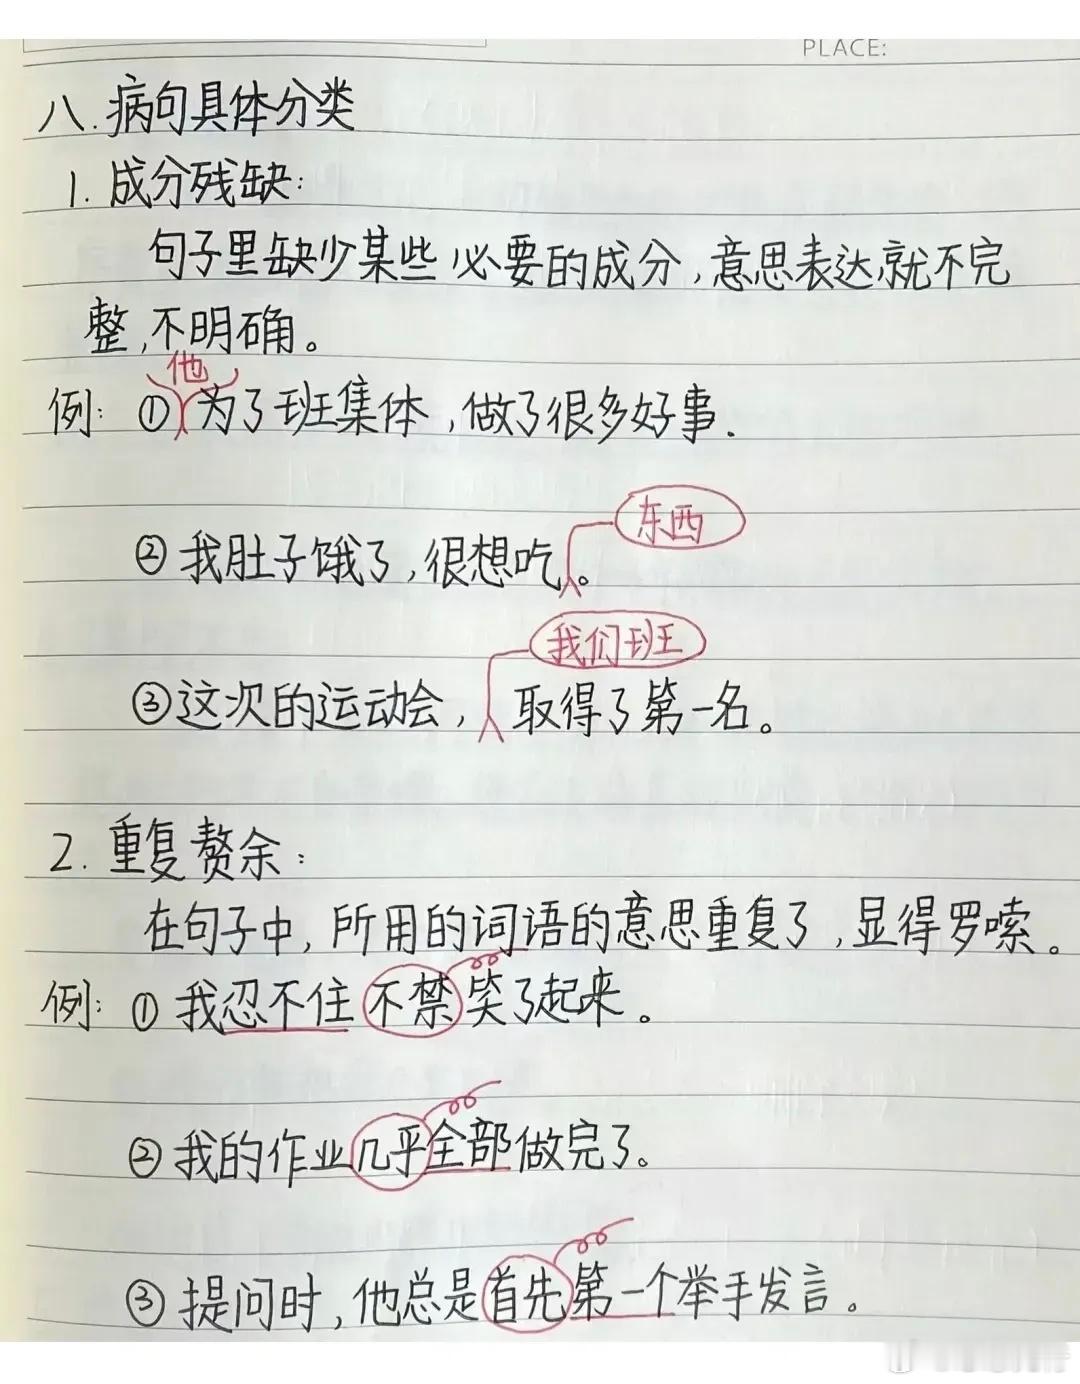 PLACE:
八.病句具体分类
1.成分残缺:
句子里缺少某些必要的成分,意思表达就不完
整,不明确。
他
例:①为了班集体,做了很多好事.
东西
②我肚子饿了,很想吃。
我们班
③这次的运动会,取得了第一名。
2.重复赘余:
在句子中,所用的词语的意思重复了,显得罗嗦。
例:①我忍不住不禁笑了起来。
②我的作业几乎全部做完了。
③提问时,他总是首先第一个举手发言。